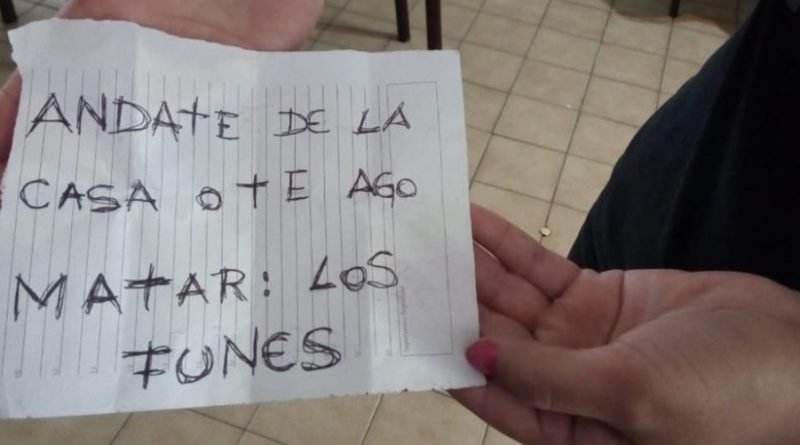 ANDATE DE LA
CASA O TE AGO
MATAR: LOS
FUNES